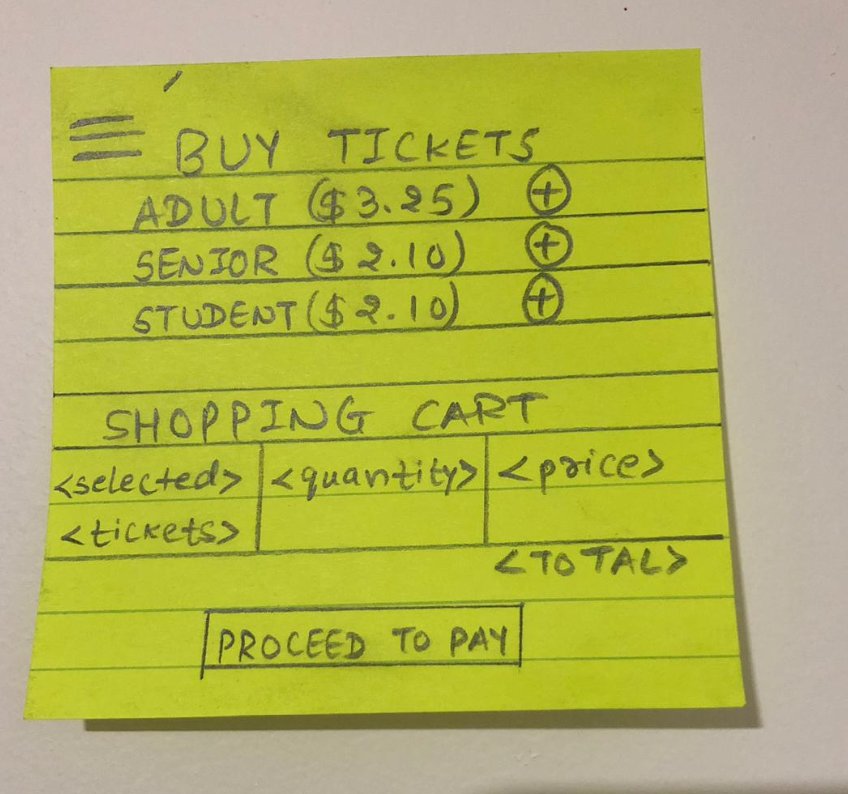 BUY TICKETS
ADULT ($3.25) +
SENIOR ($2.10) +
STUDENT ($2.10) +
SHOPPING CART
<selected> <quantity> <price>
<tickets>
<TOTAL>
PROCEED TO PAY